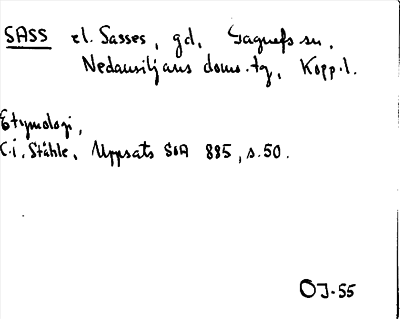 SASS el. Sasses, gd, Gagnefs sn,
Nedansiljans doms. tg, Kopp.l.
Etymologi,
C.I. Ståhle, Uppsats SOA 885, s. 50.
OJ-55